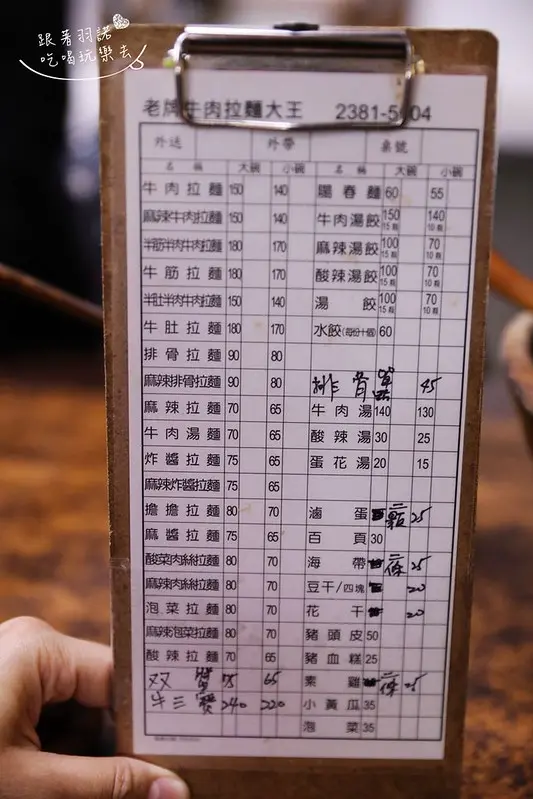 跟著羽諾
吃喝玩樂去
老牌牛肉拉麵大王 2381-5604
外送 外帶 桌號
名稱 大碗 小碗 名稱 大碗 小碗
牛肉拉麵 150 140 陽春麵 60 55
麻辣牛肉拉麵 150 140 牛肉湯餃 150 15粒 140 10粒
半筋半肉牛肉拉麵 180 170 麻辣湯餃 100 15粒 70 10粒
牛筋拉麵 180 170 酸辣湯餃 100 15粒 70 10粒
半肚半肉牛肉拉麵 150 140 湯餃 100 15粒 70 10粒
牛肚拉麵 180 170 水餃(每份十個) 60
排骨拉麵 90 80
麻辣排骨拉麵 90 80 排骨 45
麻辣拉麵 70 65 牛肉湯 140 130
牛肉湯麵 70 65 酸辣湯 30 25
炸醬拉麵 75 65 蛋花湯 20 15
麻辣炸醬拉麵 75 65
擔擔拉麵 80 70 滷蛋 二顆 25
麻醬拉麵 75 65 百頁 30
酸菜肉絲拉麵 80 70 海帶 二條 25
麻辣肉絲拉麵 80 70 豆干/四塊 20
泡菜拉麵 80 70 花干 20
麻辣泡菜拉麵 80 70 豬頭皮 50
酸辣拉麵 70 65 豬血糕 25
双醬 75 65 素雞 二條 25
牛三寶 240 220 小黃瓜 35
泡菜 35